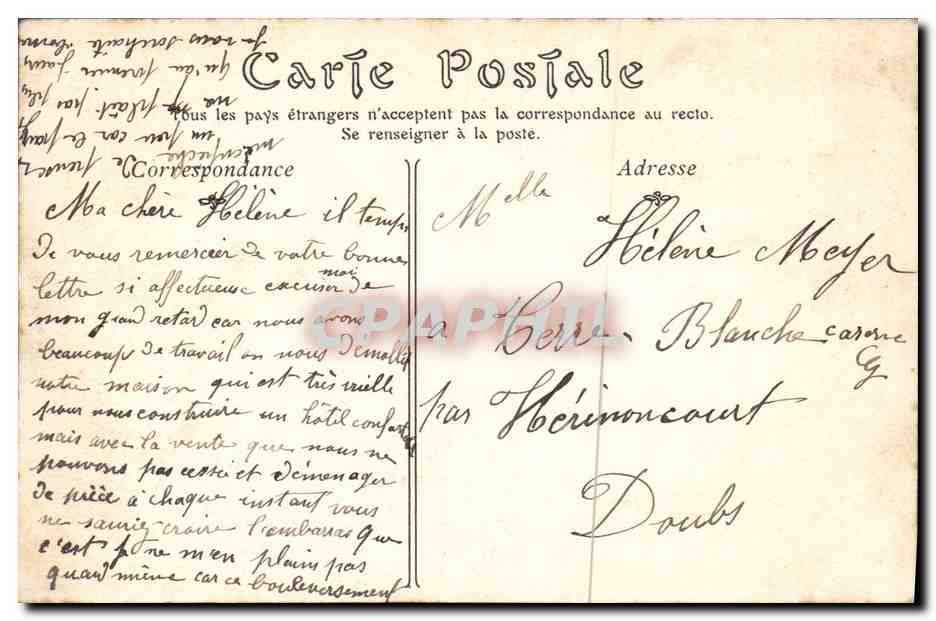 Carte Postale
Tous les pays étrangers n'acceptent pas la correspondance au recto.
Se renseigner à la poste.
Correspondance
Adresse
Ma chère Hélène il temps
de vous remercier de votre bonne
lettre si affectueuse excuser moi de
mon grand retard car nous avons
beaucoup de travail on nous démolli
notre maison qui est très vieille
pour nous construire un hôtel confort
mais avec la vente que nous ne
pouvons pas cessé et déménager
de pièce a chaque instant vous
ne sauriez croire l'embarras que
c'est je ne m'en plains pas
quand même car ce bouleversement
de
un peu car le
ne plait pas plus
qu'au premier jour
Je vous souhaite bonne
Melle
Hélène Meyer
a Terre-Blanche caserne
par Hérimoncourt
Doubs
CPAPHIL